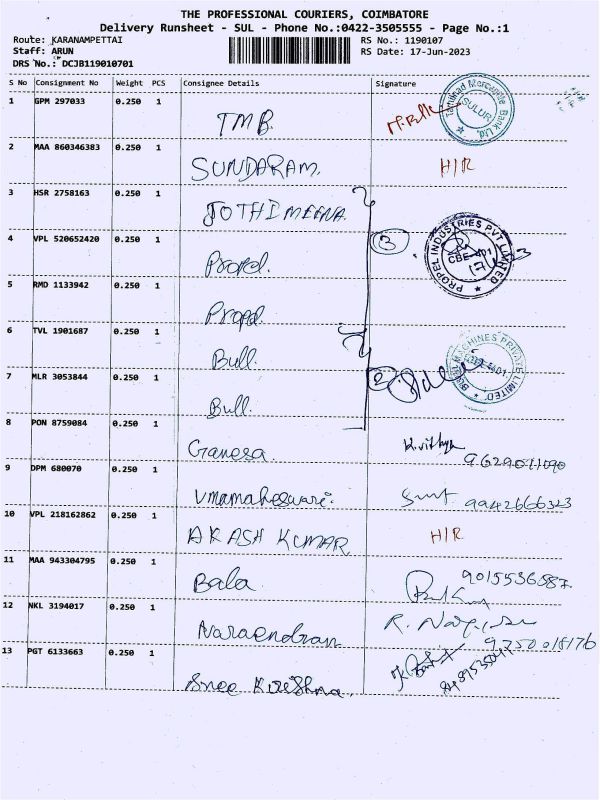 THE PROFESSIONAL COURIERS, COIMBATORE
Delivery Runsheet - SUL - Phone No.:0422-3505555 - Page No.:1
Route: KARANAMPETTAI RS No.: 1190107
Staff: ARUN RS Date: 17-Jun-2023
DRS No.: DCJB119010701
S No Consignment No Weight PCS Consignee Details Signature
1 GPM 297033 0.250 1 TMB
Tamilnad Mercantile Bank Ltd. SULUR
2 MAA 860346383 0.250 1 SUNDARAM. H/R
3 HSR 2758163 0.250 1 JOTHIMEENA
4 VPL 520652420 0.250 1 Propel. 3
PROPEL INDUSTRIES PVT LIMITED CBE-401
5 RMD 1133942 0.250 1 Propel
6 TVL 1901687 0.250 1 Bull.
MACHINES PRIVATE LIMITED
7 MLR 3053844 0.250 1 Bull. 2
8 PON 8759084 0.250 1 Ganesa K.vithya
9 DPM 680070 0.250 1 Umamaheswari. 9942666323
10 VPL 218162862 0.250 1 AKASH KUMAR H/R
11 MAA 943304795 0.250 1 Bala 9015536887.
12 NKL 3194017 0.250 1 Naraendran R.
13 PGT 6133663 0.250 1 Sree Krishna.